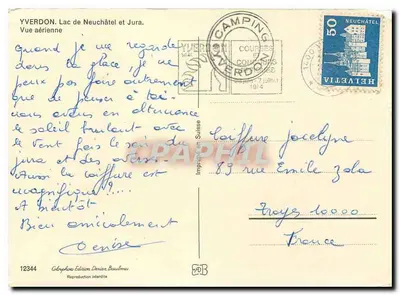 YVERDON. Lac de Neuchâtel et Jura.
Vue aérienne
quand je me regarde
dans la glace, je ne
peux pas faire autrement
que de penser à toi.
nous avons en alternance
le soleil brulant avec
le vent fois le
jura et des
Aussi la coiffure est
magnifique !....
A bientôt
Bien amicalement
Denise
12344
Reproduction interdite
Imprimé en Suisse
CAMPING
YVERDON
YVERDON
COURSES
1974
NEUCHÂTEL
50
HELVETIA
Coiffure Jocelyne
89 rue Emile Zola
Troyes 10000
France
APARFUL